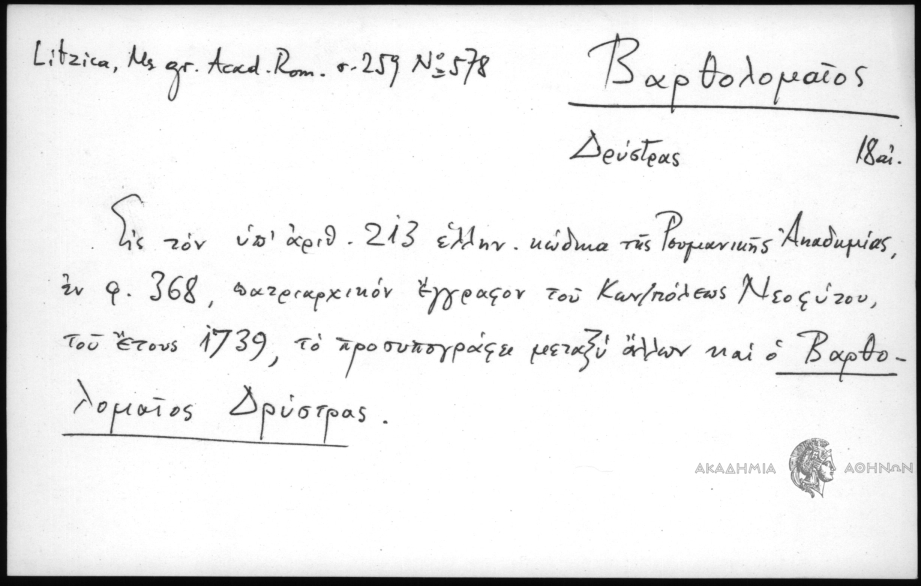 Litzica, Ms gr. Acad. Rom. σ. 259 Nº 578
Βαρθολομαῖος
Δρύστρας 18 αἰ.
Εἰς τὸν ὑπ' ἀριθ. 213 ἑλλην. κώδικα τῆς Ρουμανικῆς Ἀκαδημίας,
ἐν φ. 368, πατριαρχικὸν ἔγγραφον τοῦ Κων/πόλεως Νεοφύτου,
τοῦ ἔτους 1739, τὸ προσυπογράφει μεταξὺ ἄλλων καὶ ὁ Βαρθο-
λομαῖος Δρύστρας.
ΑΚΑΔΗΜΙΑ ΑΘΗΝΩΝ